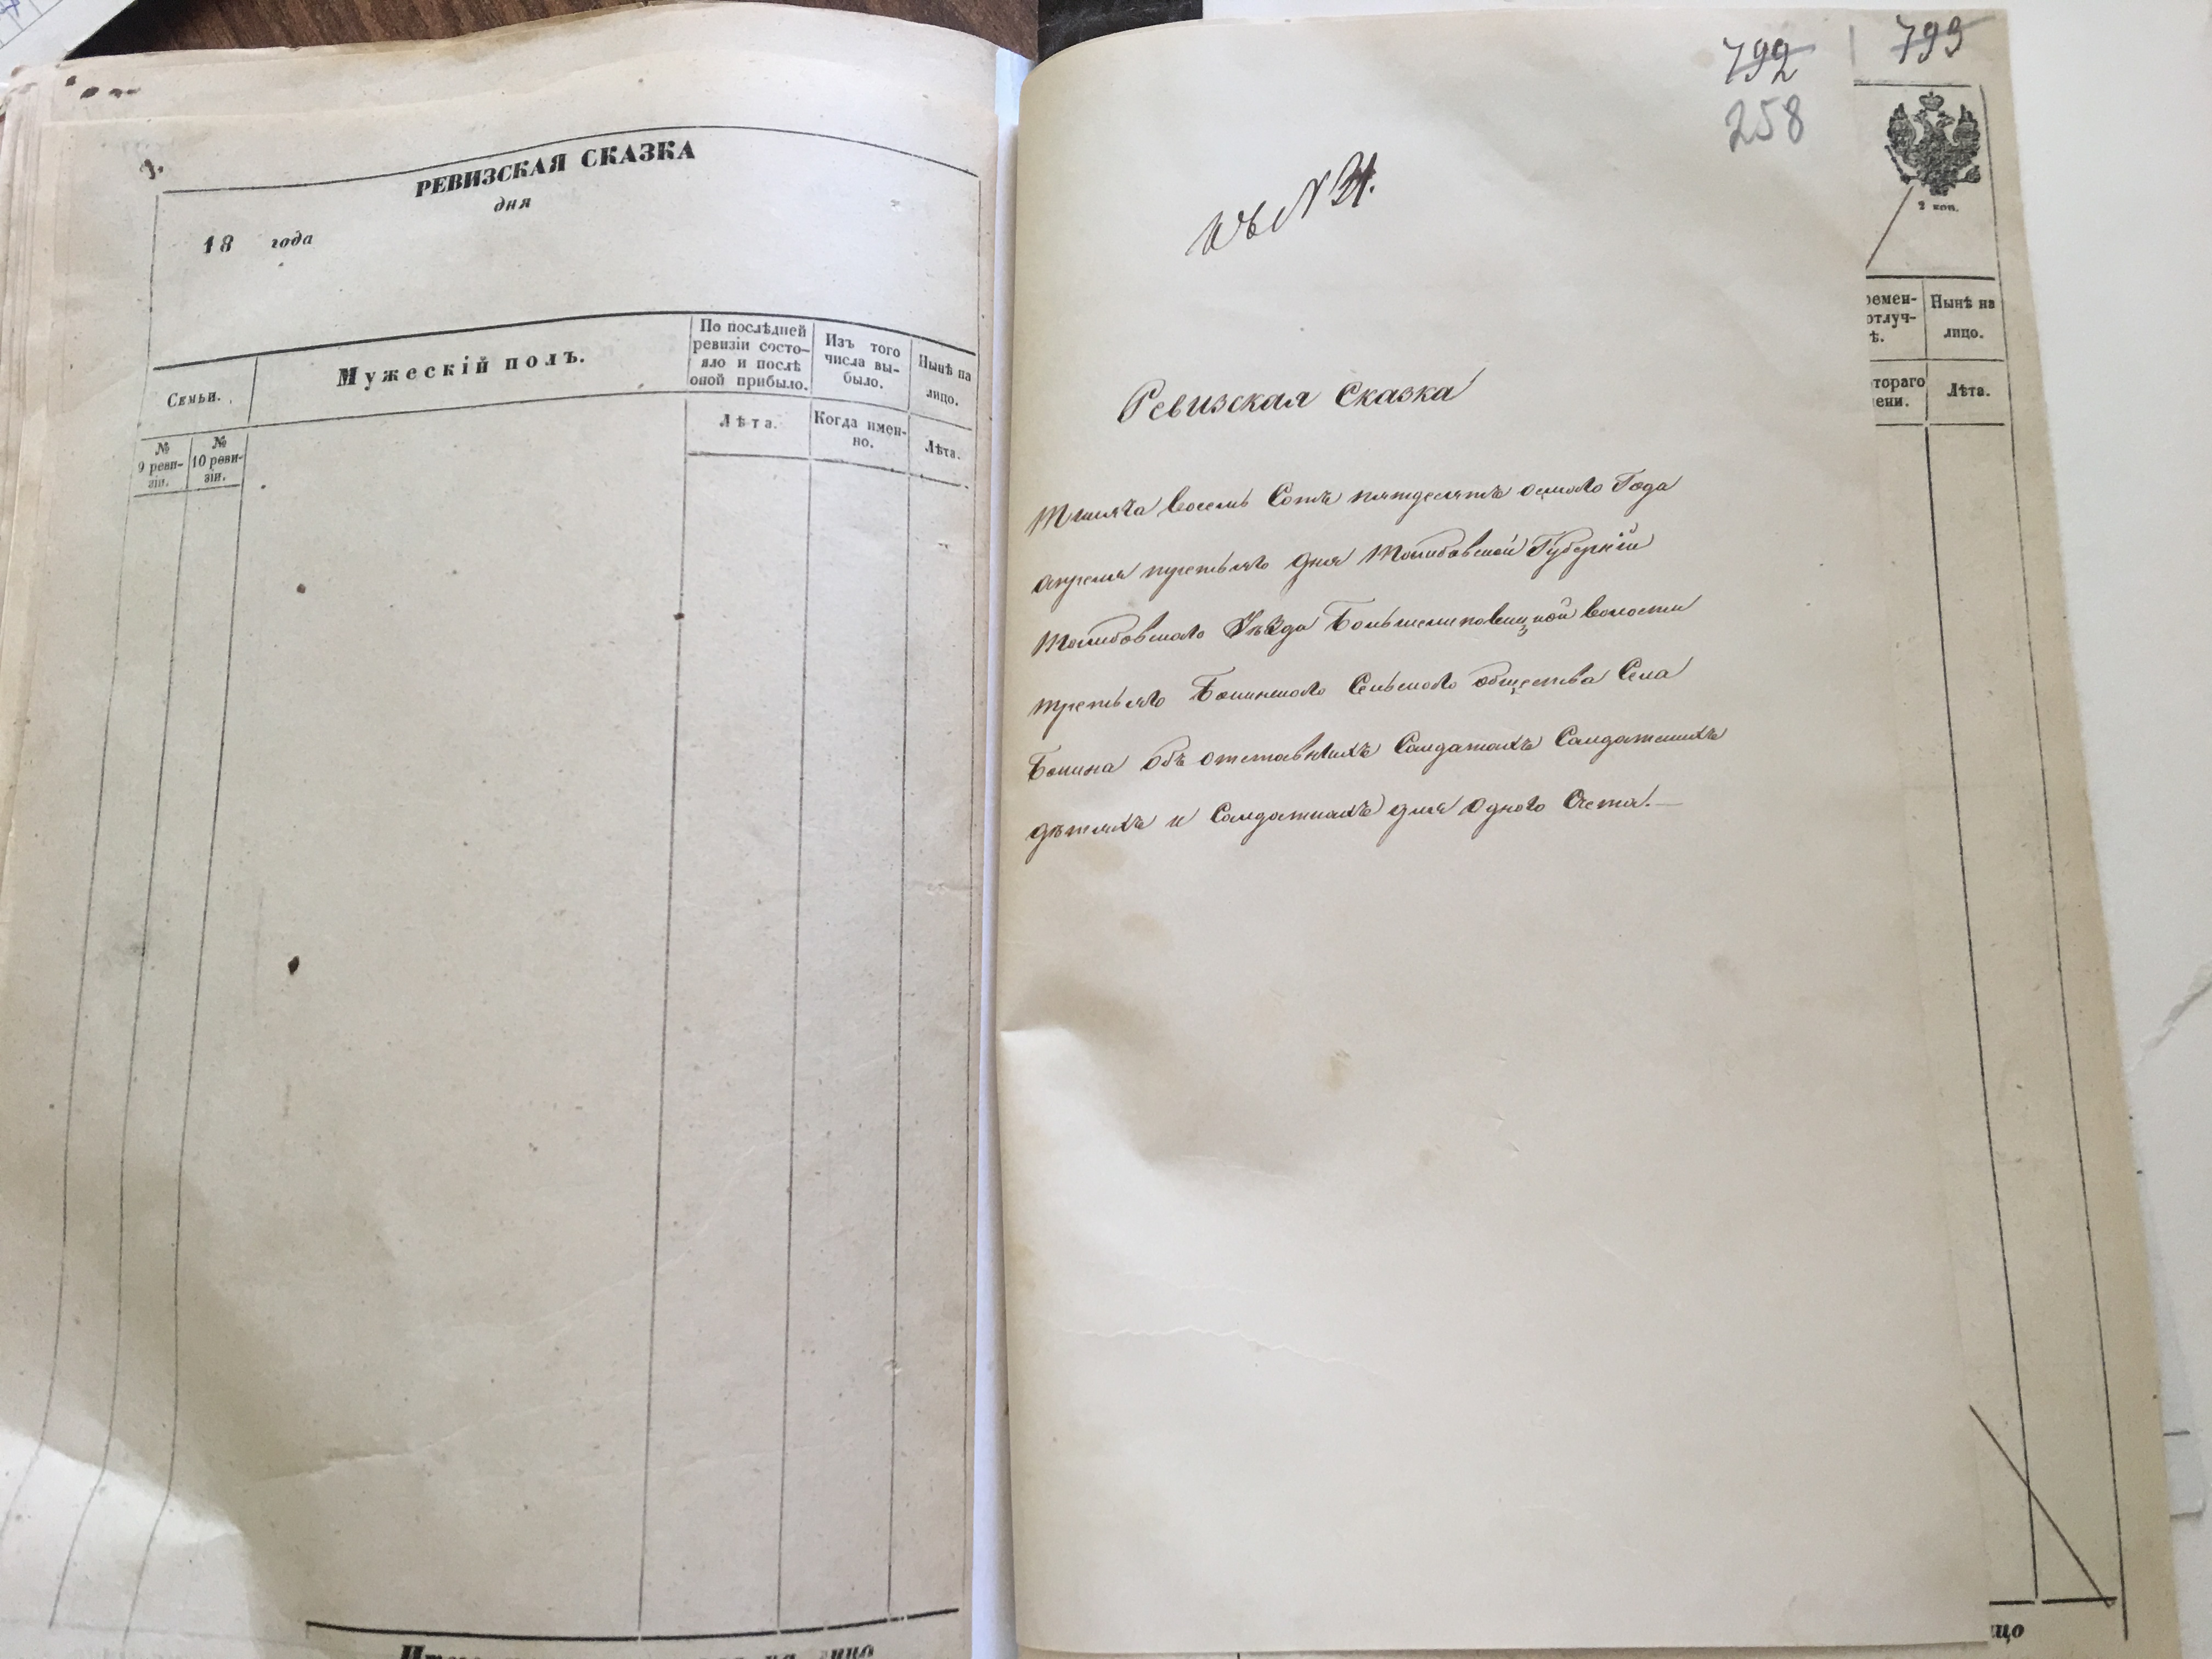 РЕВИЗСКАЯ СКАЗКА
дня
18 года
Семьи.
Мужескій полъ.
По послѣдней
ревизіи состо-
яло и послѣ
оной прибыло.
Изъ того
числа вы-
было.
Нынѣ на
лицо.
№
9 реви-
зіи.
№
10 реви-
зіи.
Лѣта.
Когда имен-
но.
Лѣта.
792
258
793
Къ N 31.
2 коп.
ремен-
отлуч-
ѣ.
Нынѣ на
лицо.
тораго
ени.
Лѣта.
Ревизская Сказка
Тысяча восемь Сотъ пятдесятъ осмаго Года
апреля третьяго дня Тамбовской Губерніи
Тамбовскаго Уѣзда волости
третьяго Сельскаго общества Села
объ отставныхъ Салдатахъ Салдатскихъ
дѣтяхъ и Салдаткахъ для одного Счета.—
на лицо
цо